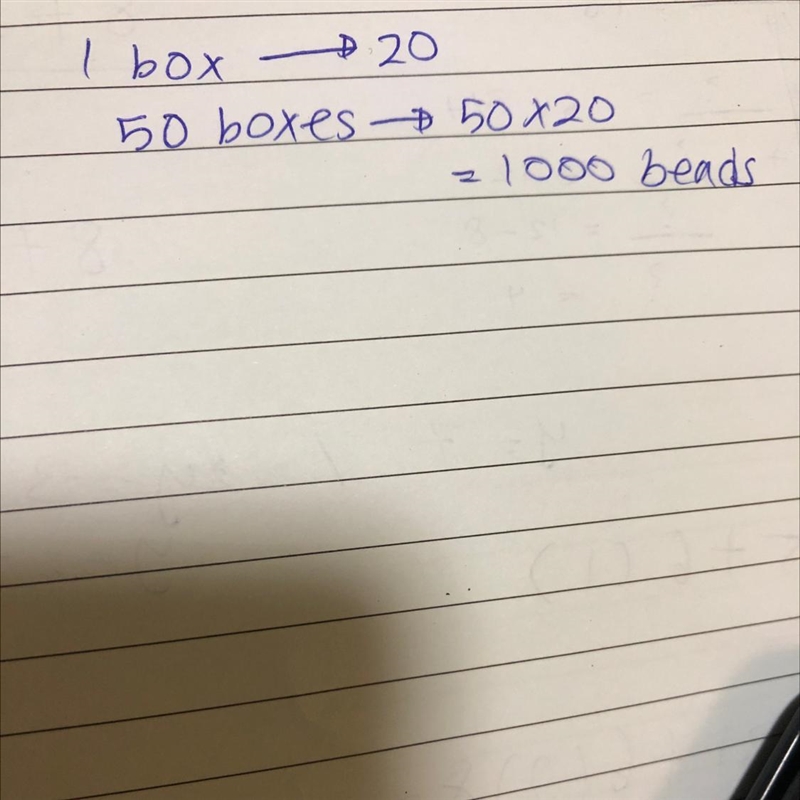 1 box → 20
50 boxes → 50x20
= 1000 beads